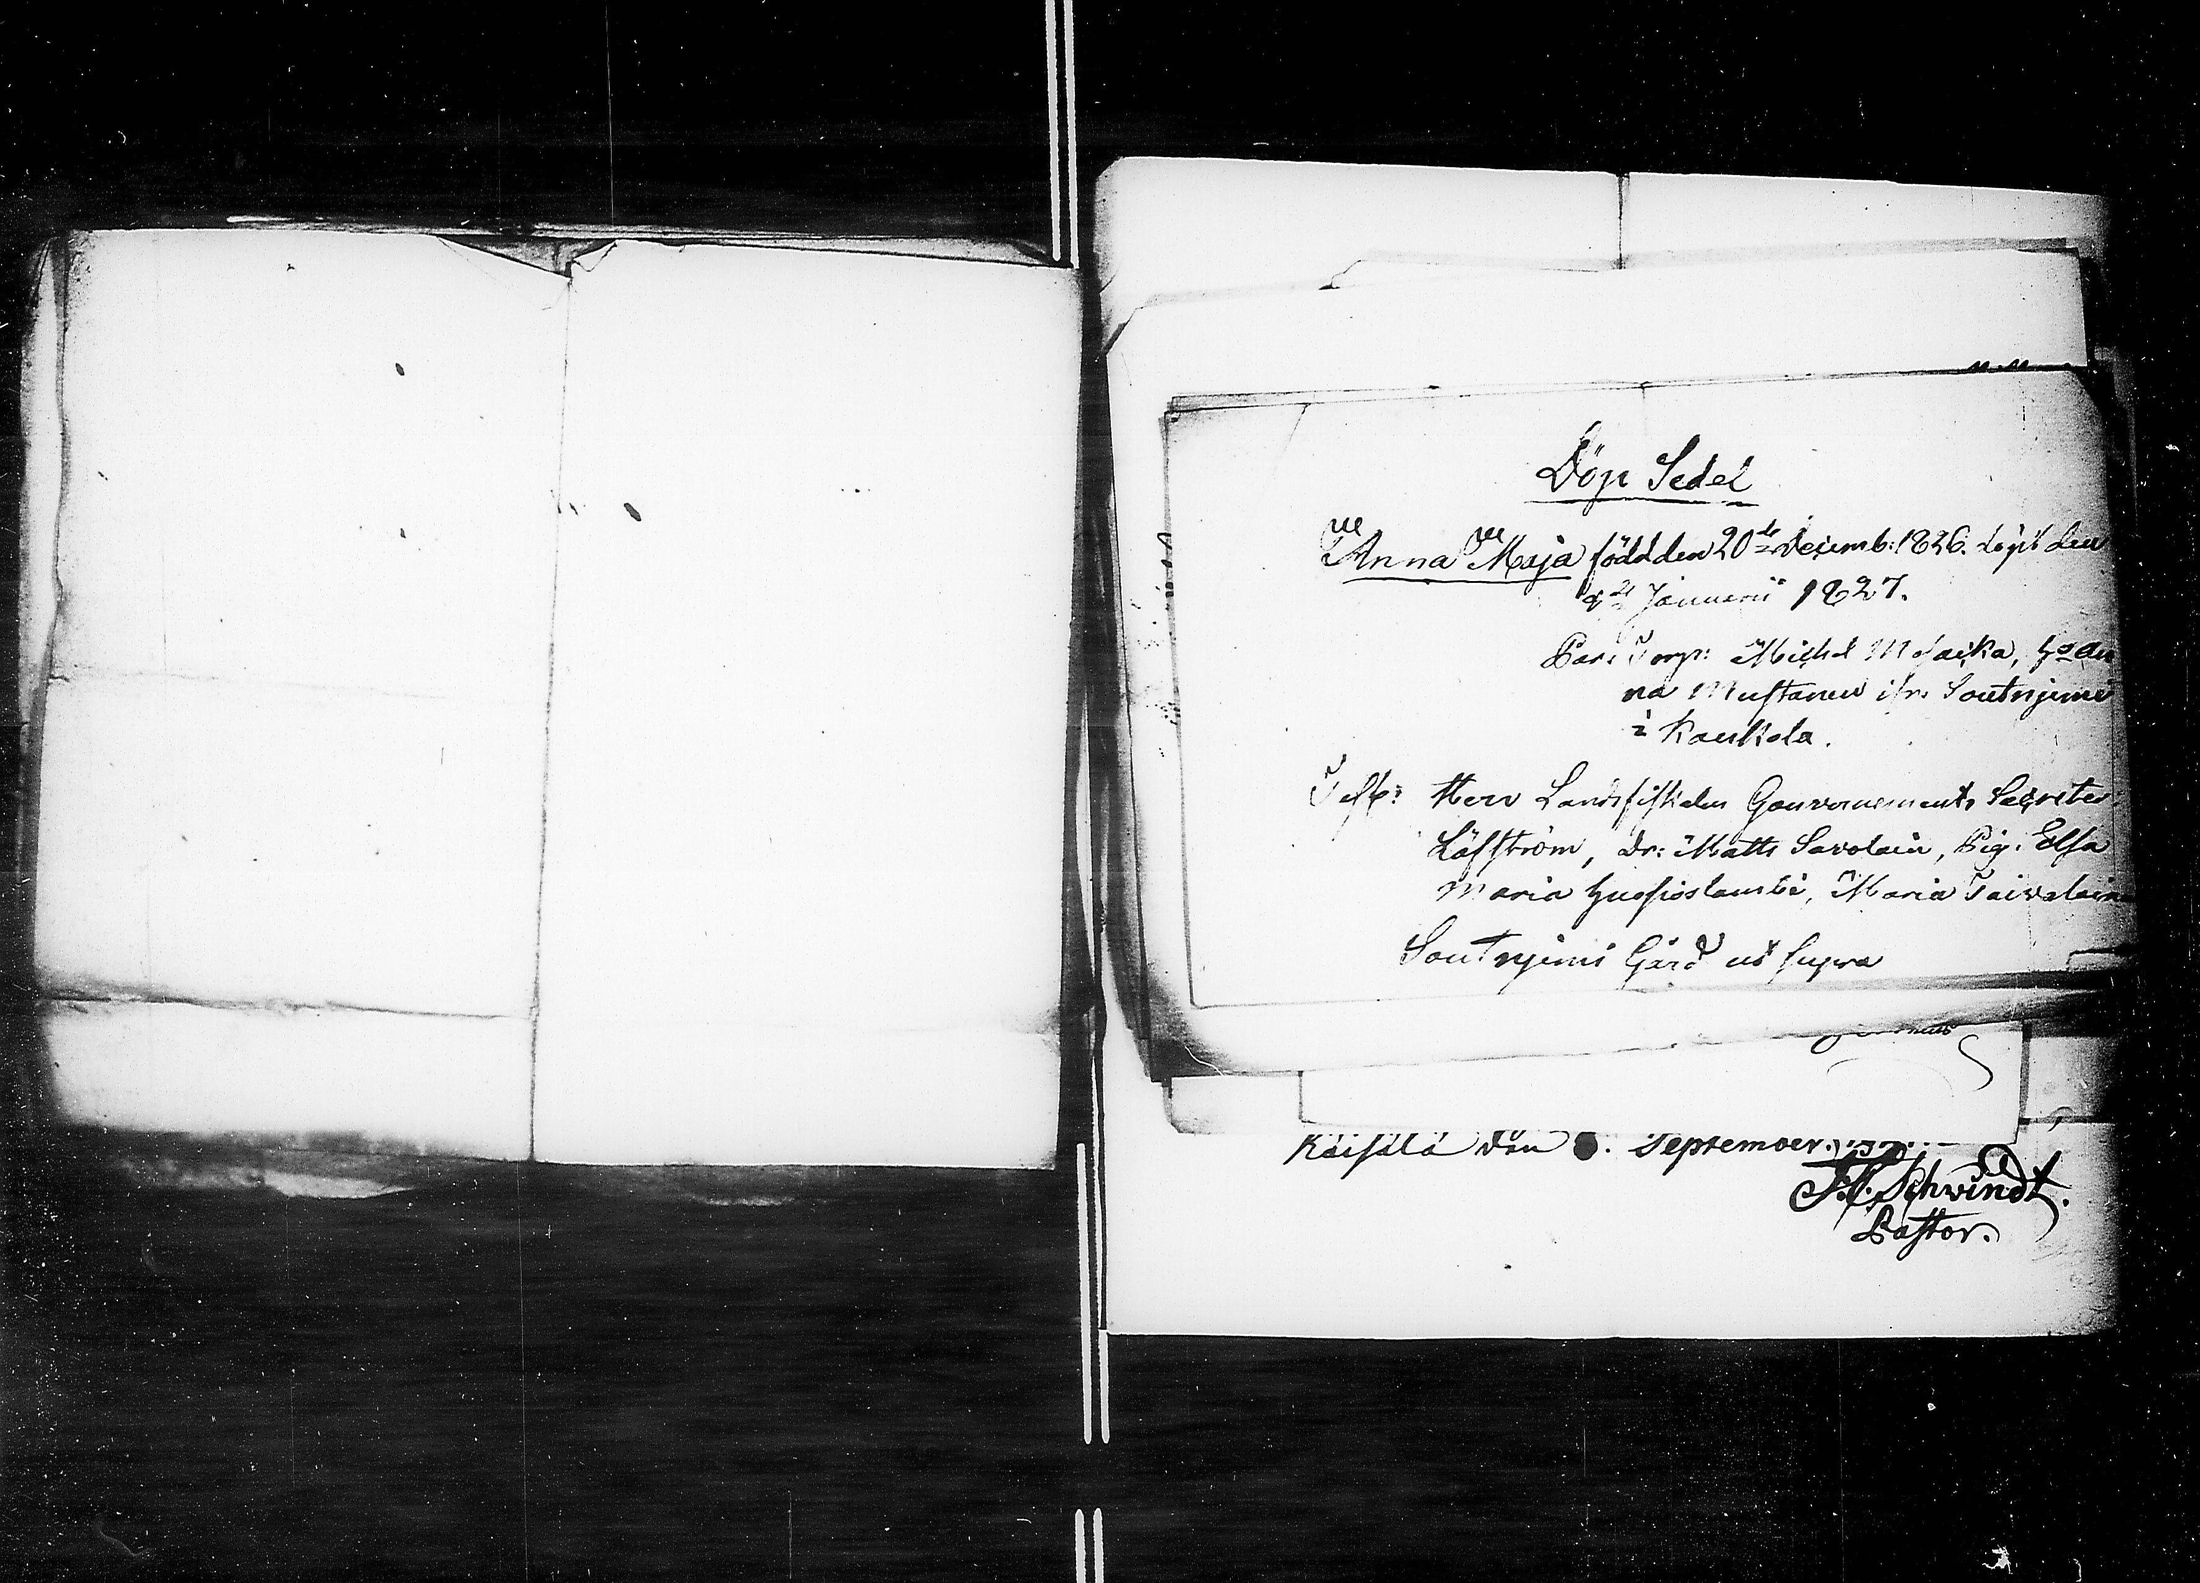 Döp Sedel
Anna Maja född den 20de Decemb: 1826. döpt den
Januarii 1827.
Par: Torp: Michel Mojaika, Hu An
na Mustanen ifr. Soutnjemi
i Kaukola.
Test: Herr Landsfiskalen Gouvernements Secreter
Löfström, Dr: Matts Savolain, Pig: Elsa
Maria Huopioslambi, Maria Taivalain
Soutnjemi Gård ut supra
Räisälä den . September.
Schvindt.
Pastor.